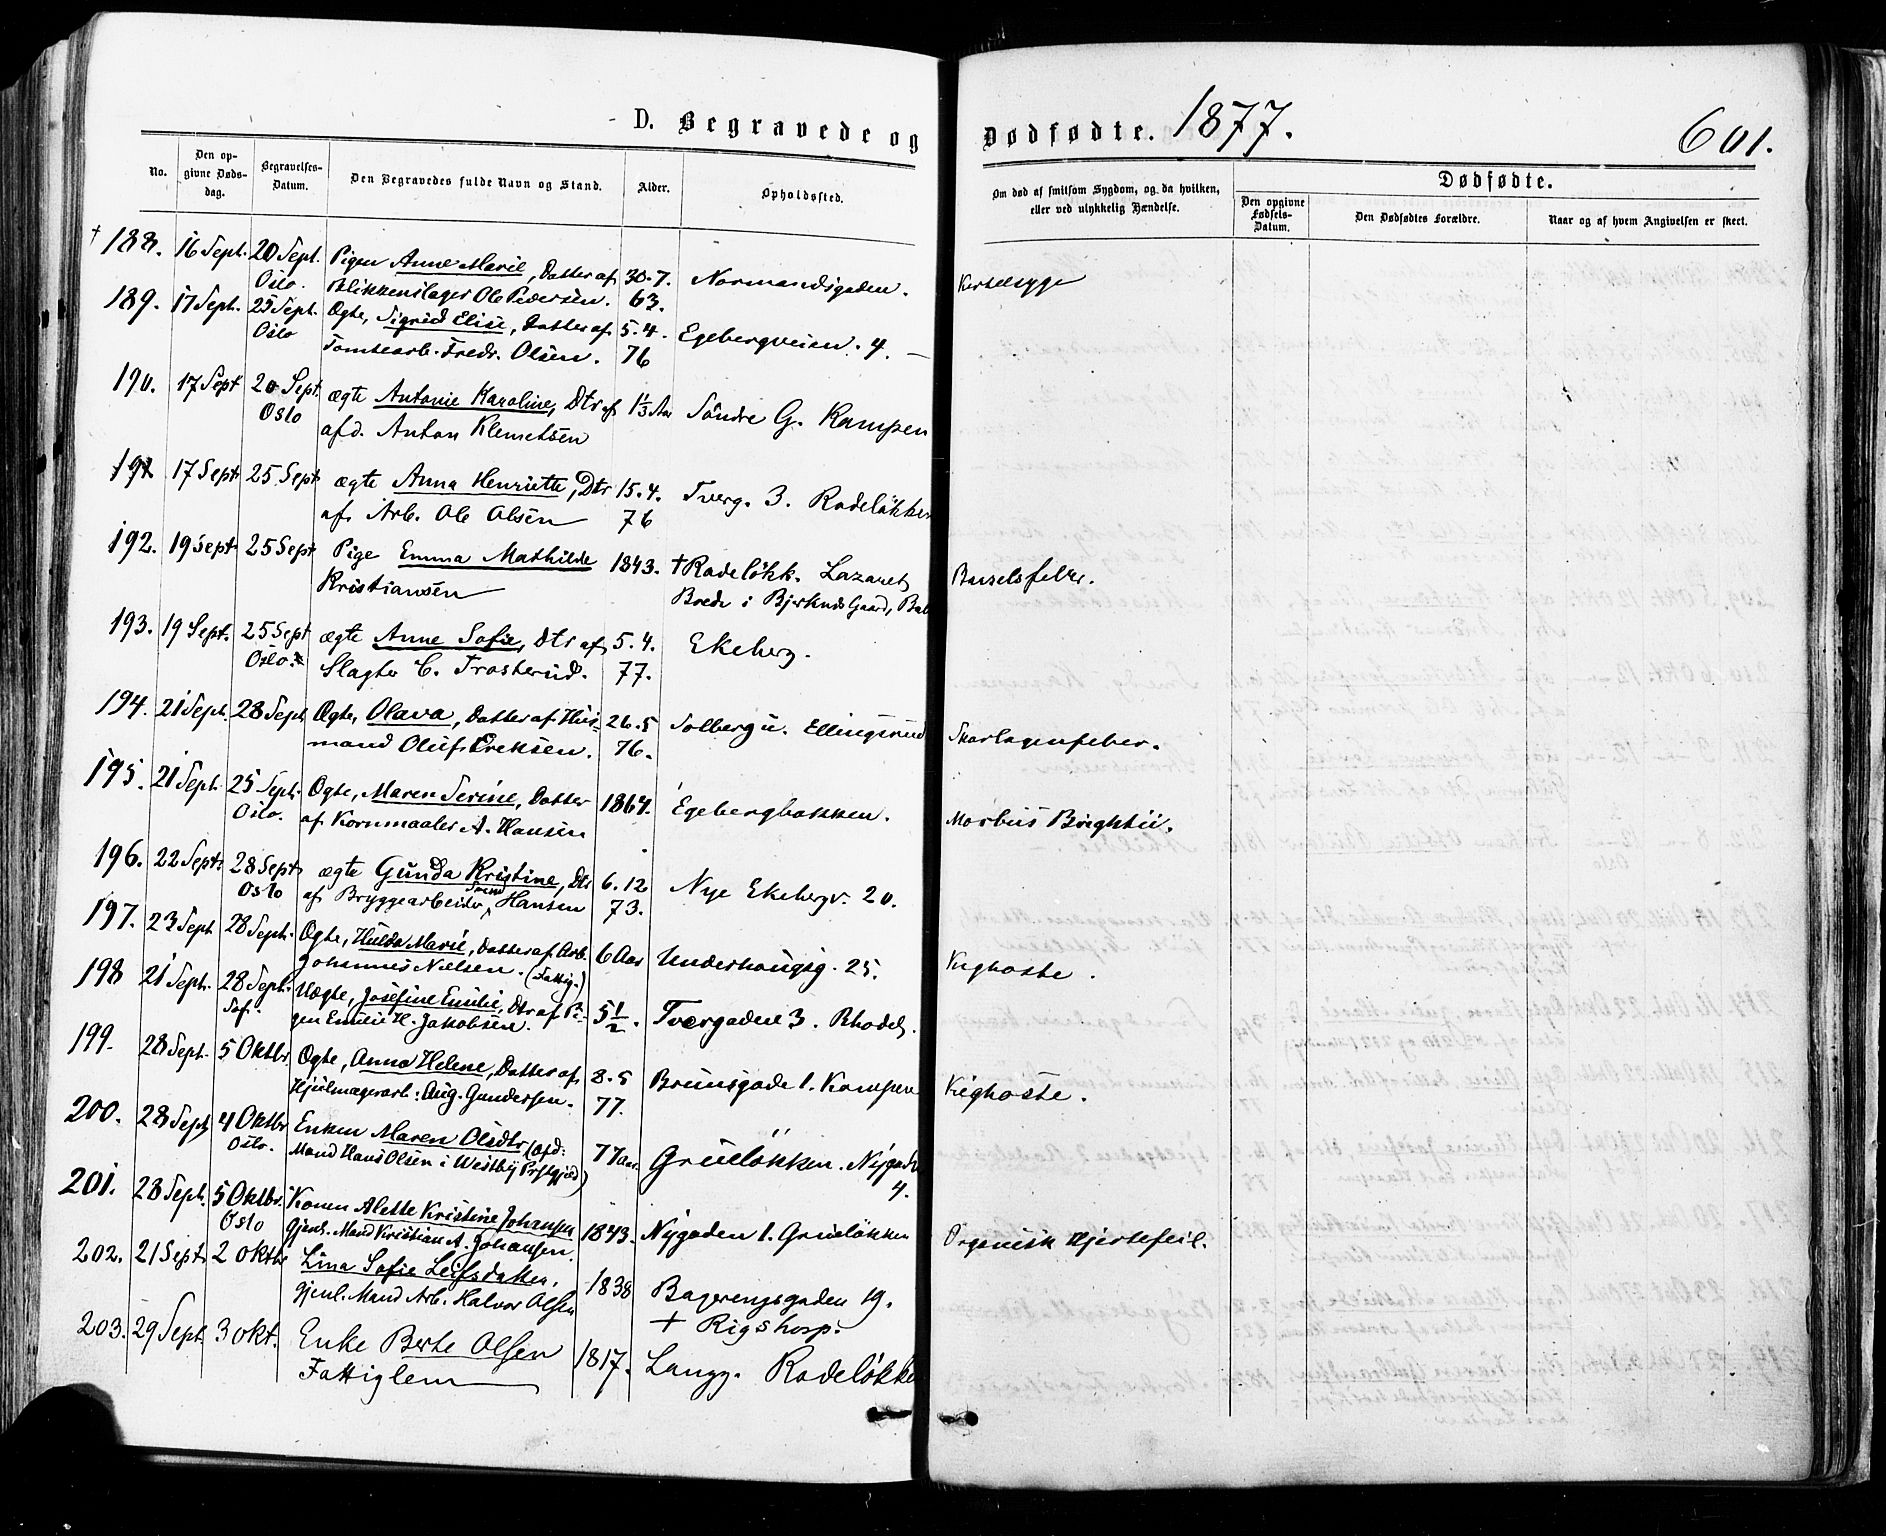 D. Begravede og Dødfødte. 1877. 601.
No. Den opgivne Dødsdag. Begravelses-Datum. Den Begravedes fulde Navn og Stand. Alder. Opholdssted. Om død af smitsom Sygdom, og da hvilken, eller ved ulykkelig Hændelse. Dødfødte.
Den opgivne Fødsels-Datum. Den Dødfødtes Forældre. Naar og af hvem Angivelsen er skeet.
† 188. 16 Sept. 20 Sept. Pigen Anne Marie, Datter af 30.7. Normandsgaden. Kertelsyge
Oslo. Blikkenslager Ole Pedersen. 63.
189. 17 Sept. 25 Sept. Ægte, Sigrid Elise, Datter af 5.4. Egebergveien. 4.
Oslo Tomtearb. Fredr. Olsen. 76
190. 17 Sept 20 Sept. ægte Antonie Karoline, Dtr af 1⅓ Aar Söndre G. Kampen
Oslo afd. Anton Klemetsen
191 17 Sept 25 Sept ægte Anna Henriette, Dtr 15.4. Tverg. 3. Rodeløkken
af Arb. Ole Olsen 76
192. 19 Sept 25 Sept Pige Emma Mathilde 1843. † Rodeløkk. Lazaret Barselsfeber.
Kristiansen Boede i Gaard,
193. 19 Sept. 25 Sept ægte Anne Sofie, Dtr af 5.4. Ekeberg.
Oslo. Slagter C. Trosterud. 77.
194. 21 Sept. 28 Sept Ægte, Olava, Datter af Hus- 26.5 Solberg u. Ellingsrud Skarlagensfeber.
mand Oluf Ereksen. 76.
195. 21 Sept. 25 Sept. Ægte, Maren Serine, Datter 1864. Egebergbakken. Morbus Brightii.
Oslo. af Kornmaaler A. Hansen
196. 22 Sept 28 Sept ægte Gunda Kristine, Dtr 6.12 Nye Ekebergv. 20.
Oslo af Bryggearbeider Hansen 73.
197. 23 Sept 28 Sept. Ægte, Hulda Marie, Datter af Arb. 6 Aar Underhaugsg. 25. Kighoste.
Johannes Nielsen. (Fattig.)
198 21 Sept. 28 Sept. Uægte, Josefine Emilie, Dtr af Pi- 5½. Tvergaden 3. Rhodel.
gen Emilie H. Jakobsen.
199. 28 Sept. 5 Oktbr. Ægte, Anna Helene, Datter af 8.5 Brunsgade 1. Kampen Kighoste.
Hjulmagerarb: Aug. Gundersen. 77.
200. 28 Sept 4 Oktbr Enken Maren Olsdtr (afd: 77 Aar. Grüeløkken. Nygade
Oslo. Mand Hans Olsen i Westby Prstgjeld) 4.
201. 28 Sept. 5 Oktbr. Konen Alette Kristine Johansen 1843. Nygaden 1. Grüeløkken Organisk Hjertefeil.
Oslo Gjenl. Mand Kristian A. Johansen.
202. 21 Sept. 2 Oktbr Lina Sofie Leifsdatter, 1838 Bagerengsgaden 19.
gjenl. Mand Arb. Halvor Olsen † Rigshosp.
203. 29 Sept. 3 Okt. Enke Berte Olsen 1817. Langg. Rodeløkke
Fattiglem